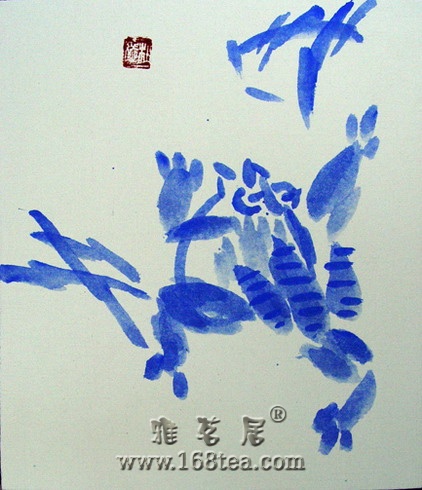 雅茗居®
www.168tea.com